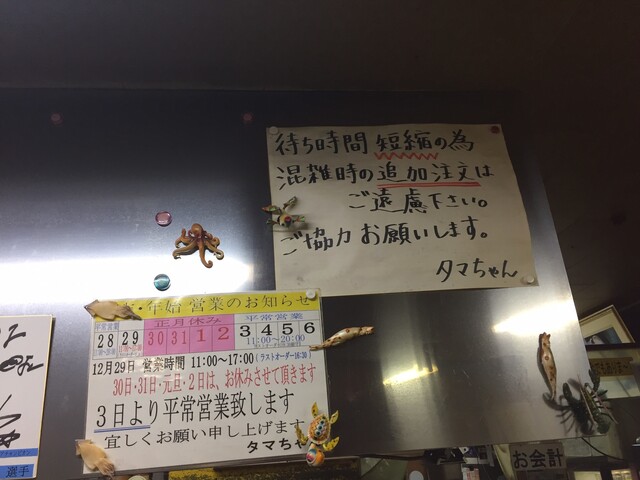 待ち時間 短縮の為
混雑時の追加注文は
ご遠慮下さい。
ご協力 お願いします。
タマちゃん
・年始 営業のお知らせ
平常営業 正月休み 平常営業
28 29 30 31 1 2 3 4 5 6
11:00～20:00
12月29日 営業時間 11:00～17:00(ラストオーダー16:30)
30日・31日・元旦・2日は、お休みさせて頂きます
3日より平常営業致します
宜しくお願い申し上げます
タマちゃ
選手
お会計